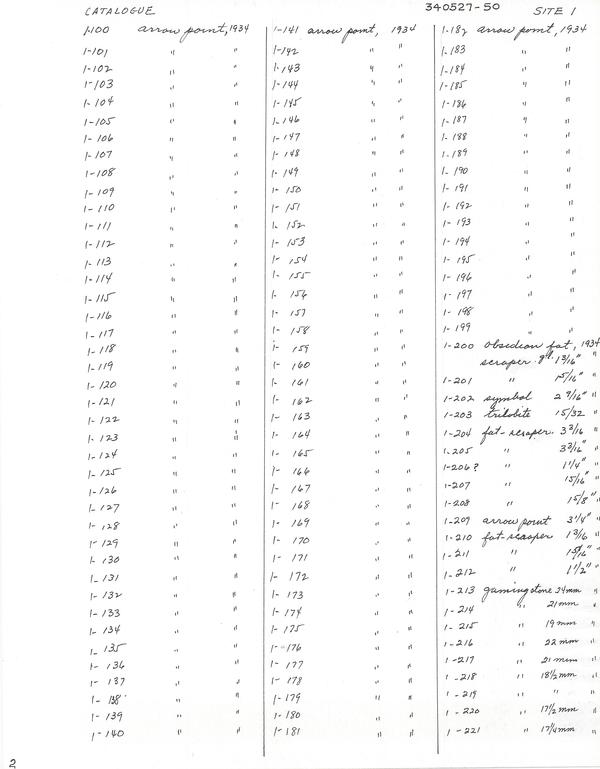 CATALOGUE
340527-50 SITE 1
1-100 arrow point, 1934
1-101 " "
1-102 " "
1-103 " "
1-104 " "
1-105 " "
1-106 " "
1-107 " "
1-108 " "
1-109 " "
1-110 " "
1-111 " "
1-112 " "
1-113 " "
1-114 " "
1-115 " "
1-116 " "
1-117 " "
1-118 " "
1-119 " "
1-120 " "
1-121 " "
1-122 " "
1-123 " "
1-124 " "
1-125 " "
1-126 " "
1-127 " "
1-128 " "
1-129 " "
1-130 " "
1-131 " "
1-132 " "
1-133 " "
1-134 " "
1-135 " "
1-136 " "
1-137 " "
1-138 " "
1-139 " "
1-140 " "
1-141 arrow point, 1934
1-142 " "
1-143 " "
1-144 " "
1-145 " "
1-146 " "
1-147 " "
1-148 " "
1-149 " "
1-150 " "
1-151 " "
1-152 " "
1-153 " "
1-154 " "
1-155 " "
1-156 " "
1-157 " "
1-158 " "
1-159 " "
1-160 " "
1-161 " "
1-162 " "
1-163 " "
1-164 " "
1-165 " "
1-166 " "
1-167 " "
1-168 " "
1-169 " "
1-170 " "
1-171 " "
1-172 " "
1-173 " "
1-174 " "
1-175 " "
1-176 " "
1-177 " "
1-178 " "
1-179 " "
1-180 " "
1-181 " "
1-182 arrow point, 1934
1-183 " "
1-184 " "
1-185 " "
1-186 " "
1-187 " "
1-188 " "
1-189 " "
1-190 " "
1-191 " "
1-192 " "
1-193 " "
1-194 " "
1-195 " "
1-196 " "
1-197 " "
1-198 " "
1-199 " "
1-200 obsidian fat, 1934
scraper. 1 3/16" "
1-201 " 15/16" "
1-202 symbol 2 9/16" "
1-203 trilobite 15/32 "
1-204 fat-scraper. 3 3/16 "
1-205 " 3 3/16" "
1-206? " 1 1/4" "
1-207 " 15/16" "
1-208 " 15/8" "
1-209 arrow point 3 1/4" "
1-210 fat-scraper 1 3/16 "
1-211 " 15/16" "
1-212 " 1 1/2" "
1-213 gaming stone 34mm "
1-214 " 21mm "
1-215 " 19mm "
1-216 " 22mm "
1-217 " 21mm "
1-218 " 18 1/2mm "
1-219 " " "
1-220 " 17 1/2mm "
1-221 " 17 1/4mm "
2